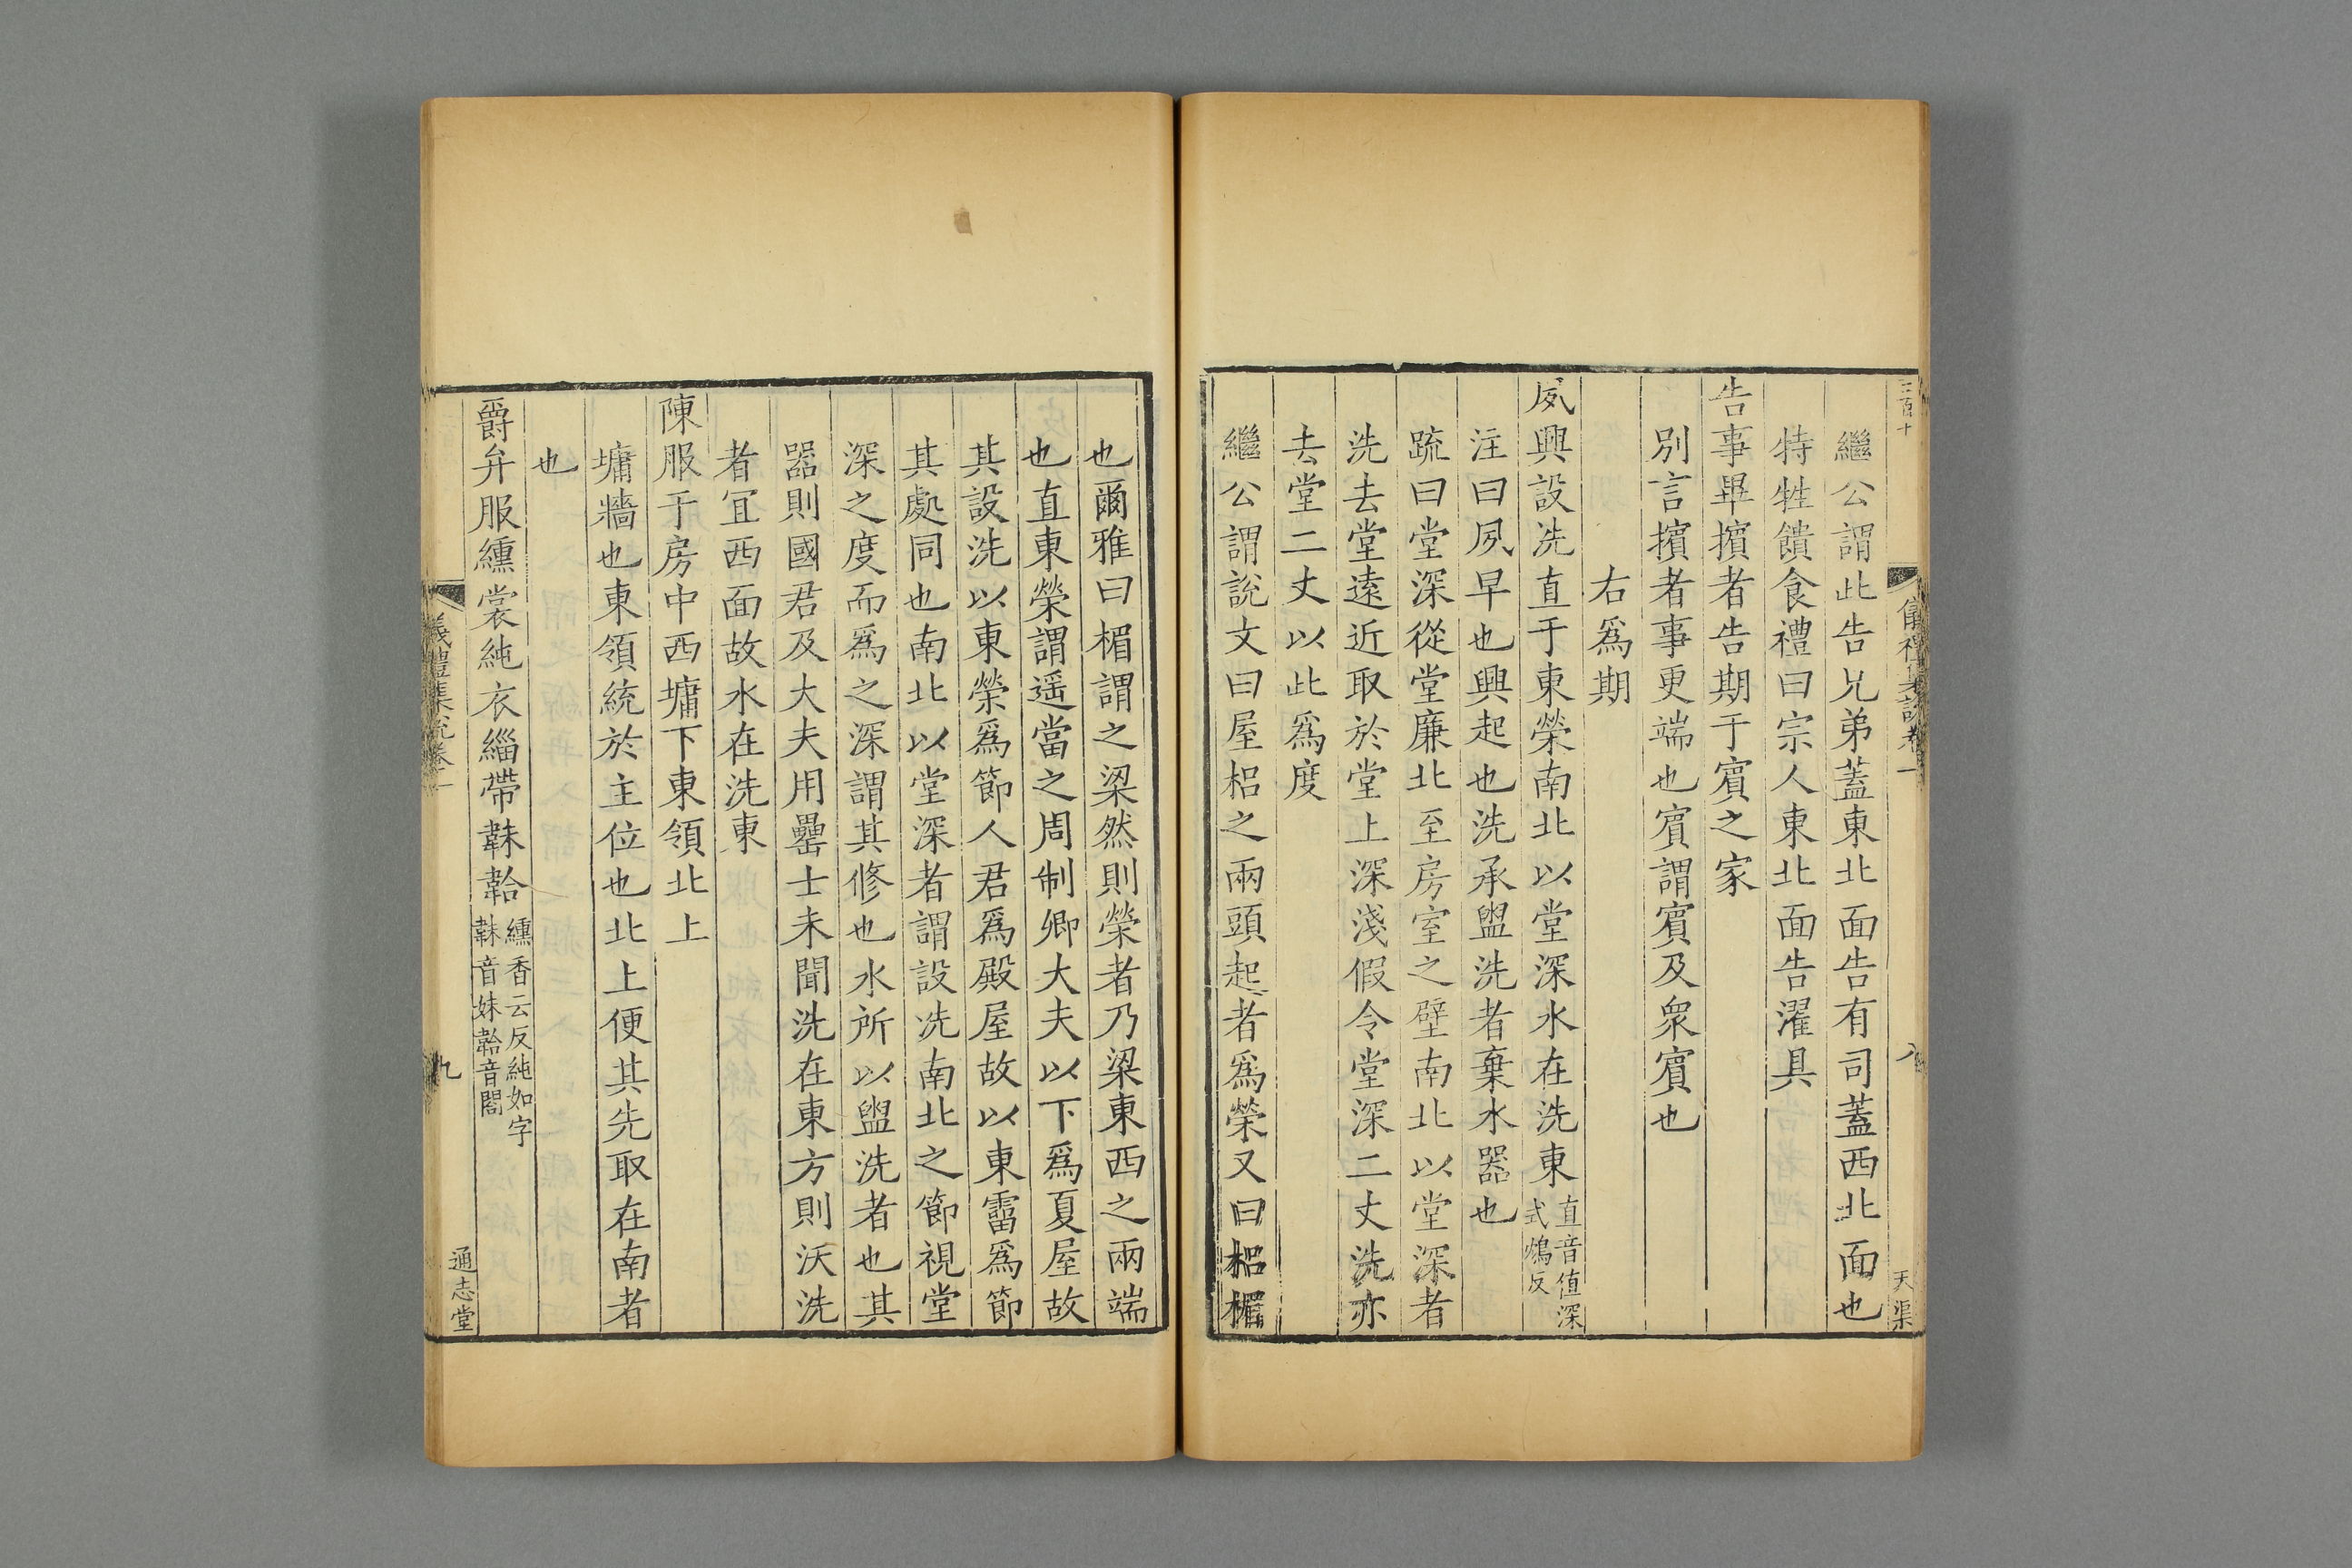 三百十
儀禮集說卷一
八
天渠
繼公謂此告兄弟蓋東北面告有司蓋西北面也
特牲饋食禮曰宗人東北面告濯具
告事畢擯者告期于賓之家
別言擯者事更端也賓謂賓及衆賓也
右爲期
夙興設洗直于東榮南北以堂深水在洗東直音值深式鴆反
注曰夙早也興起也洗承盥洗者棄水器也
疏曰堂深從堂廉北至房室之壁南北以堂深者
洗去堂遠近取於堂上深淺假令堂深二丈洗亦
去堂二丈以此爲度
繼公謂說文曰屋梠之兩頭起者爲榮又曰梠楣
也爾雅曰楣謂之梁然則榮者乃梁東西之兩端
也直東榮謂遥當之周制卿大夫以下爲夏屋故
其設洗以東榮爲節人君爲殿屋故以東霤爲節
其處同也南北以堂深者謂設洗南北之節視堂
深之度而爲之深謂其修也水所以盥洗者也其
器則國君及大夫用罍士未聞洗在東方則沃洗
者冝西面故水在洗東
陳服于房中西墉下東領北上
墉牆也東領統於主位也北上便其先取在南者
也
爵弁服纁裳純衣緇帶韎韐纁香云反純如字韎音妹韐音閤
儀禮集說卷一
九
通志堂